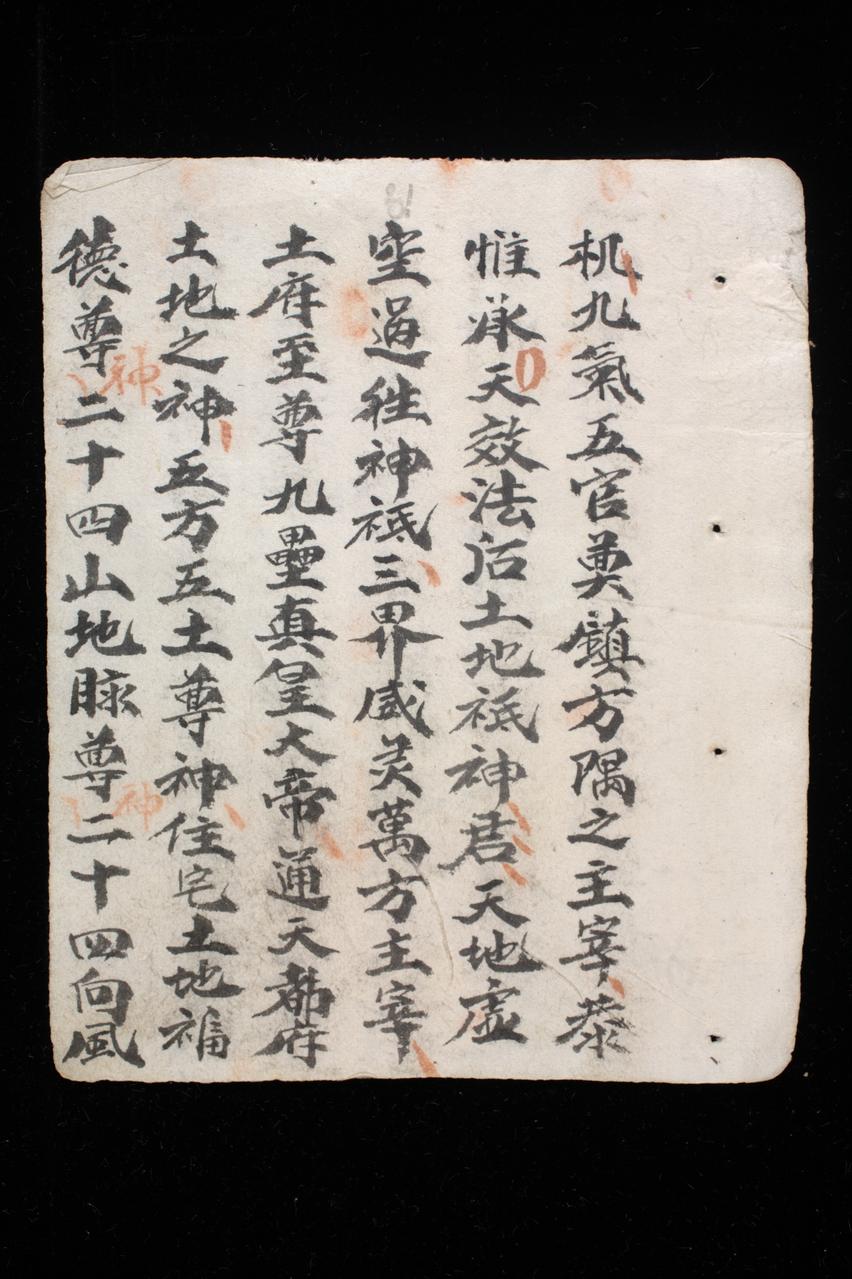 机九氣五官奠鎮方隅之主宰恭
惟承天效法后土地祇神君天地虛
空過往神祇三界威灵萬方主宰
土府至尊九壘真皇大帝通天都府
土地之神五方五土尊神住宅土地福
德尊神二十四山地脉尊神二十四向風